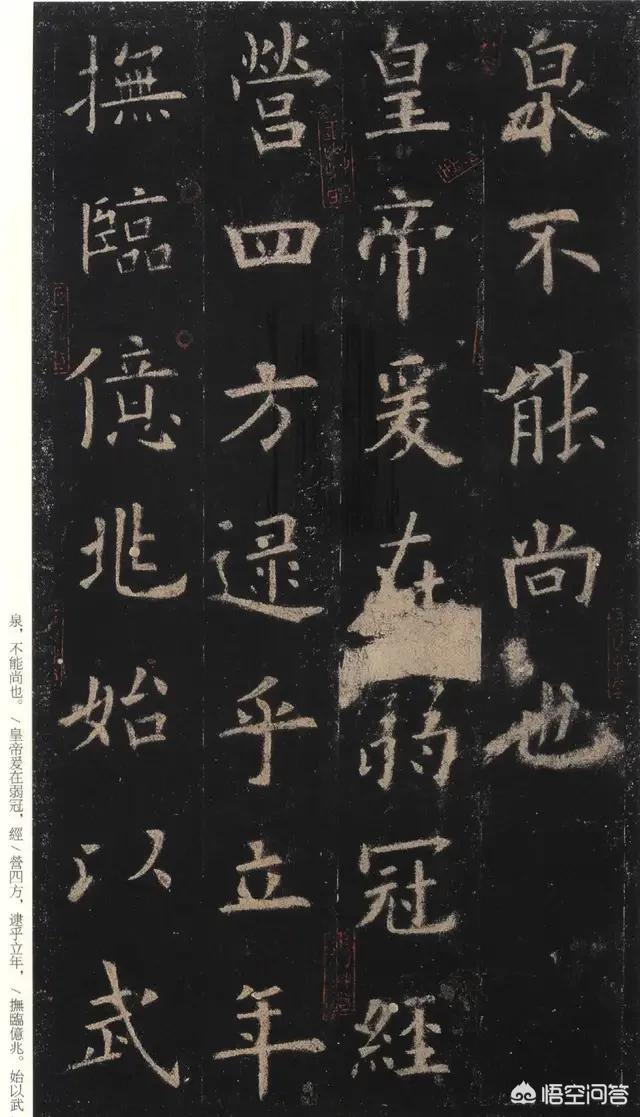 泉不能尚也
皇帝爰在弱冠經
營四方逮乎立年
撫臨億兆始以武
泉，不能尚也。/皇帝爰在弱冠，經/營四方，逮乎立年，/撫臨億兆。始以武
悟空问答